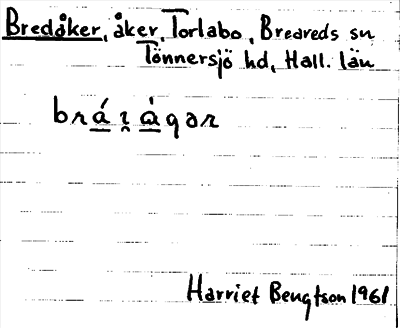 Bredåker, åker, Torlabo, Breareds sn
Tönnersjö hd, Hall. län
Harriet Bengtson 1961